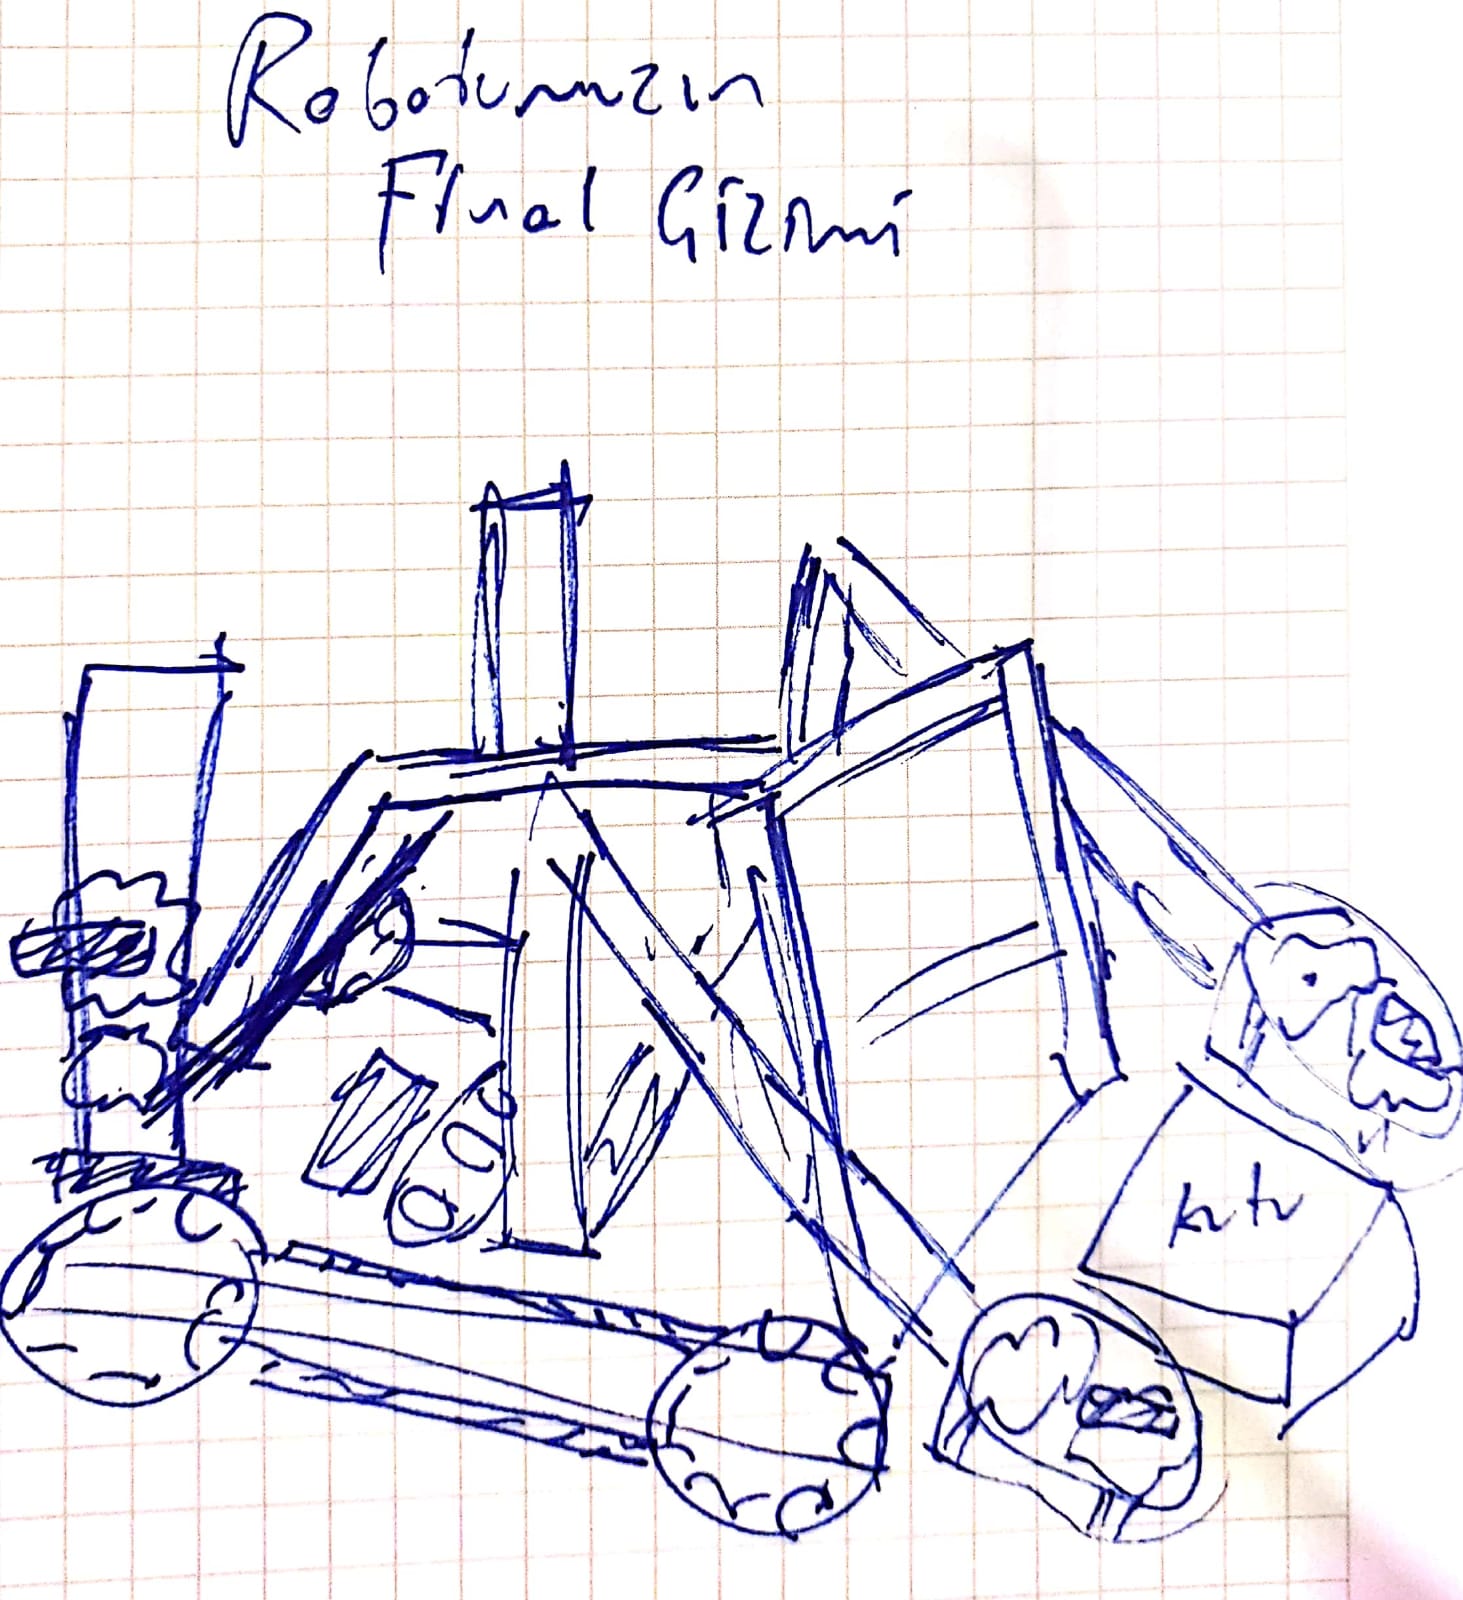 Robotumuzun
Final Çizimi
kutu